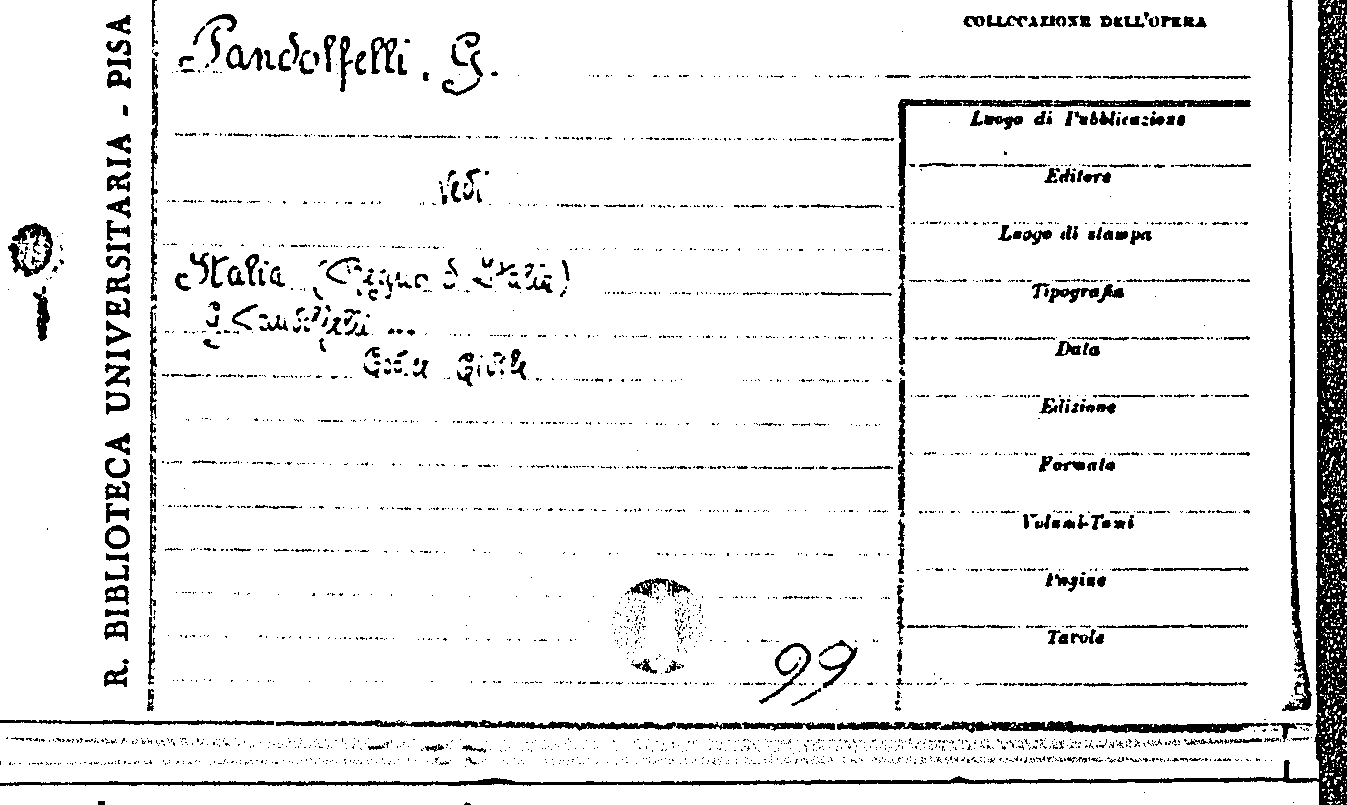 R. BIBLIOTECA UNIVERSITARIA - PISA
COLLOCAZIONE DELL'OPERA
Pandolfelli, G.
Vedi
Italia (Regno d'Italia)
...
Codice Civile
99
Luogo di Pubblicazione
Editore
Luogo di stampa
Tipografia
Data
Edizione
Formato
Volumi-Tomi
Pagine
Tavole